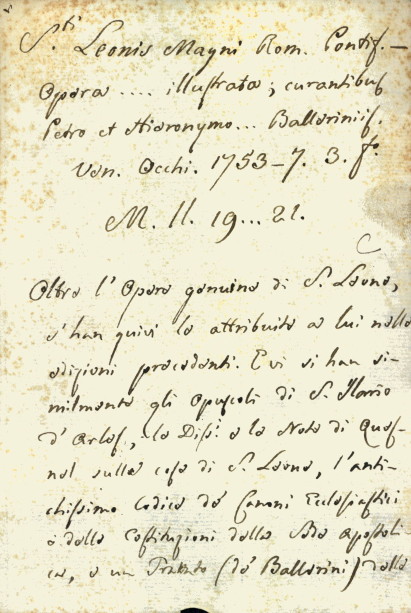 S.ti Leonis Magni Rom. Pontif.—
Opera .... illustrata; curantibus
Petro et Hieronymo... Balleriniis.
Ven. Occhi. 1753-7. 3. fo.
M. II. 19... 21.
Oltre l'Opere genuine di S. Leone,
s'han quivi le attribuite a lui nelle
edizioni precedenti. Evi si han si-
milmente gli Opuscoli di S. Ilario
d'Arles, le Diss. e le Note di Ques-
nel sulle cose di S. Leone, l'anti-
chissimo Codice de' Canoni Ecclesiastici
e delle Costituzioni della Sede Apostoli-
ca, e un Trattato (de' Ballerini) delle